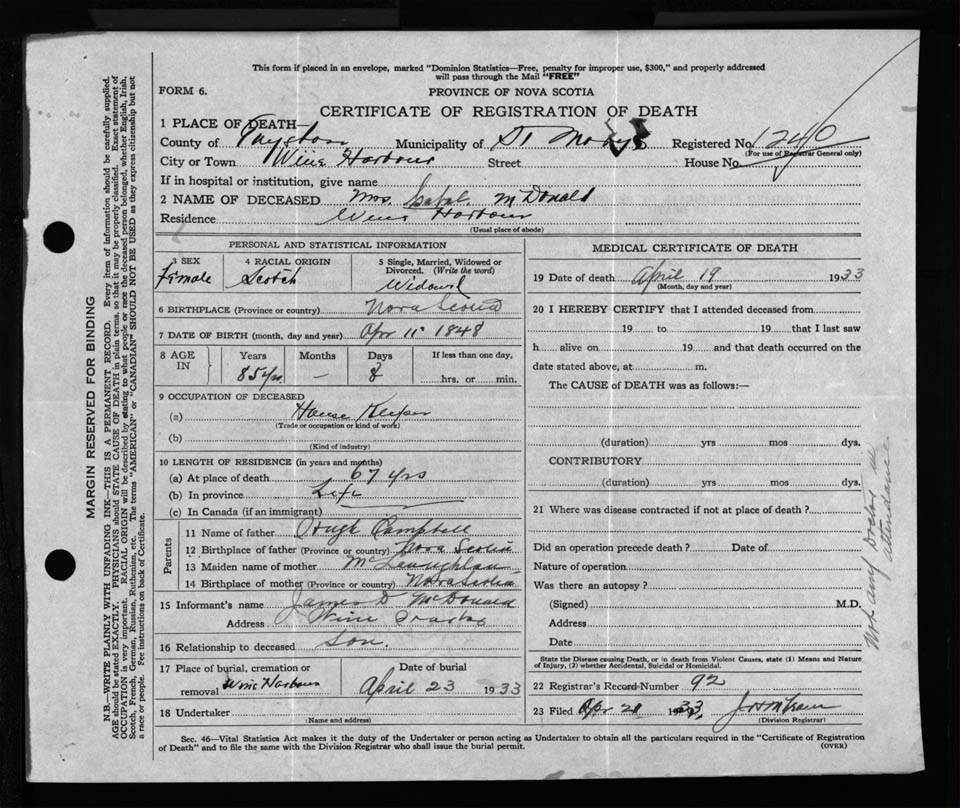 This form if placed in an envelope, marked "Dominion Statistics—Free, penalty for improper use, $300," and properly addressed
will pass through the Mail "FREE"
FORM 6.
PROVINCE OF NOVA SCOTIA
CERTIFICATE OF REGISTRATION OF DEATH
1 PLACE OF DEATH—
County of Municipality of St Registered No. 1240
(For use of Registrar General only)
City or Town Wine Harbour Street House No.
If in hospital or institution, give name
2 NAME OF DECEASED Mrs. McDonald
Residence Wine Harbour
(Usual place of abode)
PERSONAL AND STATISTICAL INFORMATION
3 SEX 4 RACIAL ORIGIN 5 Single, Married, Widowed or
Divorced. (Write the word)
Female Scotch Widowed
6 BIRTHPLACE (Province or country) Nova Scotia
7 DATE OF BIRTH (month, day and year) Apr 11 1848
8 AGE IN Years Months Days If less than one day,
85 yrs — 8 hrs. or min.
9 OCCUPATION OF DECEASED
(a) House Keeper
(Trade or occupation or kind of work)
(b)
(Kind of industry)
10 LENGTH OF RESIDENCE (in years and months)
(a) At place of death 67 yrs
(b) In province Life
(c) In Canada (if an immigrant)
Parents
11 Name of father Hugh Campbell
12 Birthplace of father (Province or country) Nova Scotia
13 Maiden name of mother McLaughlan
14 Birthplace of mother (Province or country) Nova Scotia
15 Informant's name James D McDonald
Address Wine
16 Relationship to deceased Son.
17 Place of burial, cremation or
removal Wine Harbour
Date of burial
April 23 1933
18 Undertaker
(Name and address)
MEDICAL CERTIFICATE OF DEATH
19 Date of death April 19 1933
(Month, day and year)
20 I HEREBY CERTIFY that I attended deceased from
19 to 19 that I last saw
h alive on 19 and that death occurred on the
date stated above, at m.
The CAUSE of DEATH was as follows:—
(duration) yrs mos dys.
CONTRIBUTORY
(duration) yrs mos dys.
21 Where was disease contracted if not at place of death?
Did an operation precede death? Date of
Nature of operation
Was there an autopsy?
(Signed) M.D.
Address
Date
Not any Doctor in
attendance
State the Disease causing Death, or in death from Violent Causes, state (1) Means and Nature
of Injury, (2) whether Accidental, Suicidal or Homicidal.
22 Registrar's Record Number 92
23 Filed Apr 1933,
(Division Registrar)
Sec. 46—Vital Statistics Act makes it the duty of the Undertaker or person acting as Undertaker to obtain all the particulars required in the "Certificate of Registration
of Death" and to file the same with the Division Registrar who shall issue the burial permit.
(OVER)
MARGIN RESERVED FOR BINDING
N.B.—WRITE PLAINLY WITH UNFADING INK—THIS IS A PERMANENT RECORD. Every item of information should be carefully supplied.
AGE should be stated EXACTLY. PHYSICIANS should STATE CAUSE OF DEATH in plain terms, so that it may be properly classified. Exact statement of
OCCUPATION is very important. RACIAL ORIGIN will be described by stating to what people or race the deceased person belonged, whether English, Irish,
Scotch, French, German, Russian, Ruthenian, etc. The terms "AMERICAN" or "CANADIAN" SHOULD NOT BE USED as they express citizenship but not
a race or people. See instructions on back of Certificate.